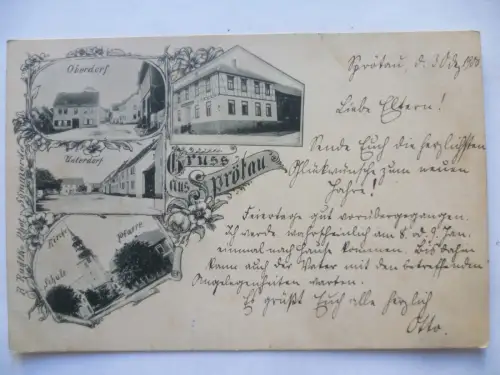 Oberdorf
Unterdorf
Gruss
aus Sprötau
Kirche
Pfarre
Schule
Sprötau, d. 30 Dez. 1900
Liebe Eltern!
Sende Euch die herzlichsten
Glükwünsche zum neuen
Jahre!
Feiertage gut vorübergegangen.
Ich werde wahrtheinlich am 8. od. 9. Jan.
einmal nach Hause kommen. Bis dahin
kann auch der Vater mit den betreffenden
Angelegenheiten warten.
Es grüßt Euch alle herzlich
Otto.